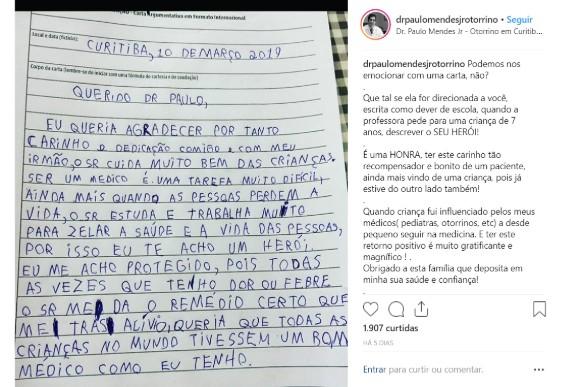 AÇÃO - Carta Argumentativa em Formato Internacional
Local e data (fictícia):
CURITIBA, 10 DE MARÇO 2019
Corpo da carta (lembre-se de iniciar com uma fórmula de cortesia e de saudação)
QUERIDO DR PAULO,
EU QUERIA AGRADECER POR TANTO
CARINHO e DEDICAÇÃO COMIGO e COM MEU
IRMÃO, O SR CUIDA MUITO BEM DAS CRIANÇAS.
SER UM MEDICO É UMA TAREFA MUITO DIFÍCIL,
AINDA MAIS QUANDO AS PESSOAS PERDEM A
VIDA, O SR ESTUDA E TRABALHA MUITO
PARA ZELAR A SAÚDE E A VIDA DAS PESSOAS,
POR ISSO EU TE ACHO UM HEROI.
EU ME ACHO PROTEGIDO, POIS TODAS
AS VEZES QUE TENHO DOR OU FEBRE
O SR ME DA O REMÉDIO CERTO QUE
ME TRÁS ALÍVIO, QUERIA QUE TODAS AS
CRIANÇAS NO MUNDO TIVESSEM UM BOM
MÉDICO COMO EU TENHO.
drpaulomendesjrotorrino • Seguir
Dr. Paulo Mendes Jr - Otorrino em Curitib...
drpaulomendesjrotorrino Podemos nos
emocionar com uma carta, não?
Que tal se ela for direcionada a você,
escrita como dever de escola, quando a
professora pede para uma criança de 7
anos, descrever o SEU HERÓI!
.
É uma HONRA, ter este carinho tão
recompensador e bonito de um paciente,
ainda mais vindo de uma criança, pois já
estive do outro lado também!
.
Quando criança fui influenciado pelos meus
médicos( pediatras, otorrinos, etc) a desde
pequeno seguir na medicina. E ter este
retorno positivo é muito gratificante e
magnífico ! .
Obrigado a esta família que deposita em
minha sua saúde e confiança!
.
1.907 curtidas
HÁ 5 DIAS
Entrar para curtir ou comentar.